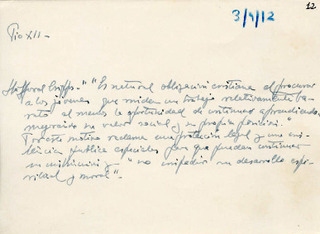 12
3/9/12
Pio XII -
Stafford Cripps - "Es natural obligación cristiana el procurar
a los jóvenes que rinden un trabajo relativamente ba-
rato al menos la oportunidad de continuar aprendiendo,
mejorando su valor social y su propia posición".
Por este motivo reclama una protección legal y una
pública especiales para que puedan continuar
su instrucción y "no impedir su desarrollo espi-
ritual y moral".